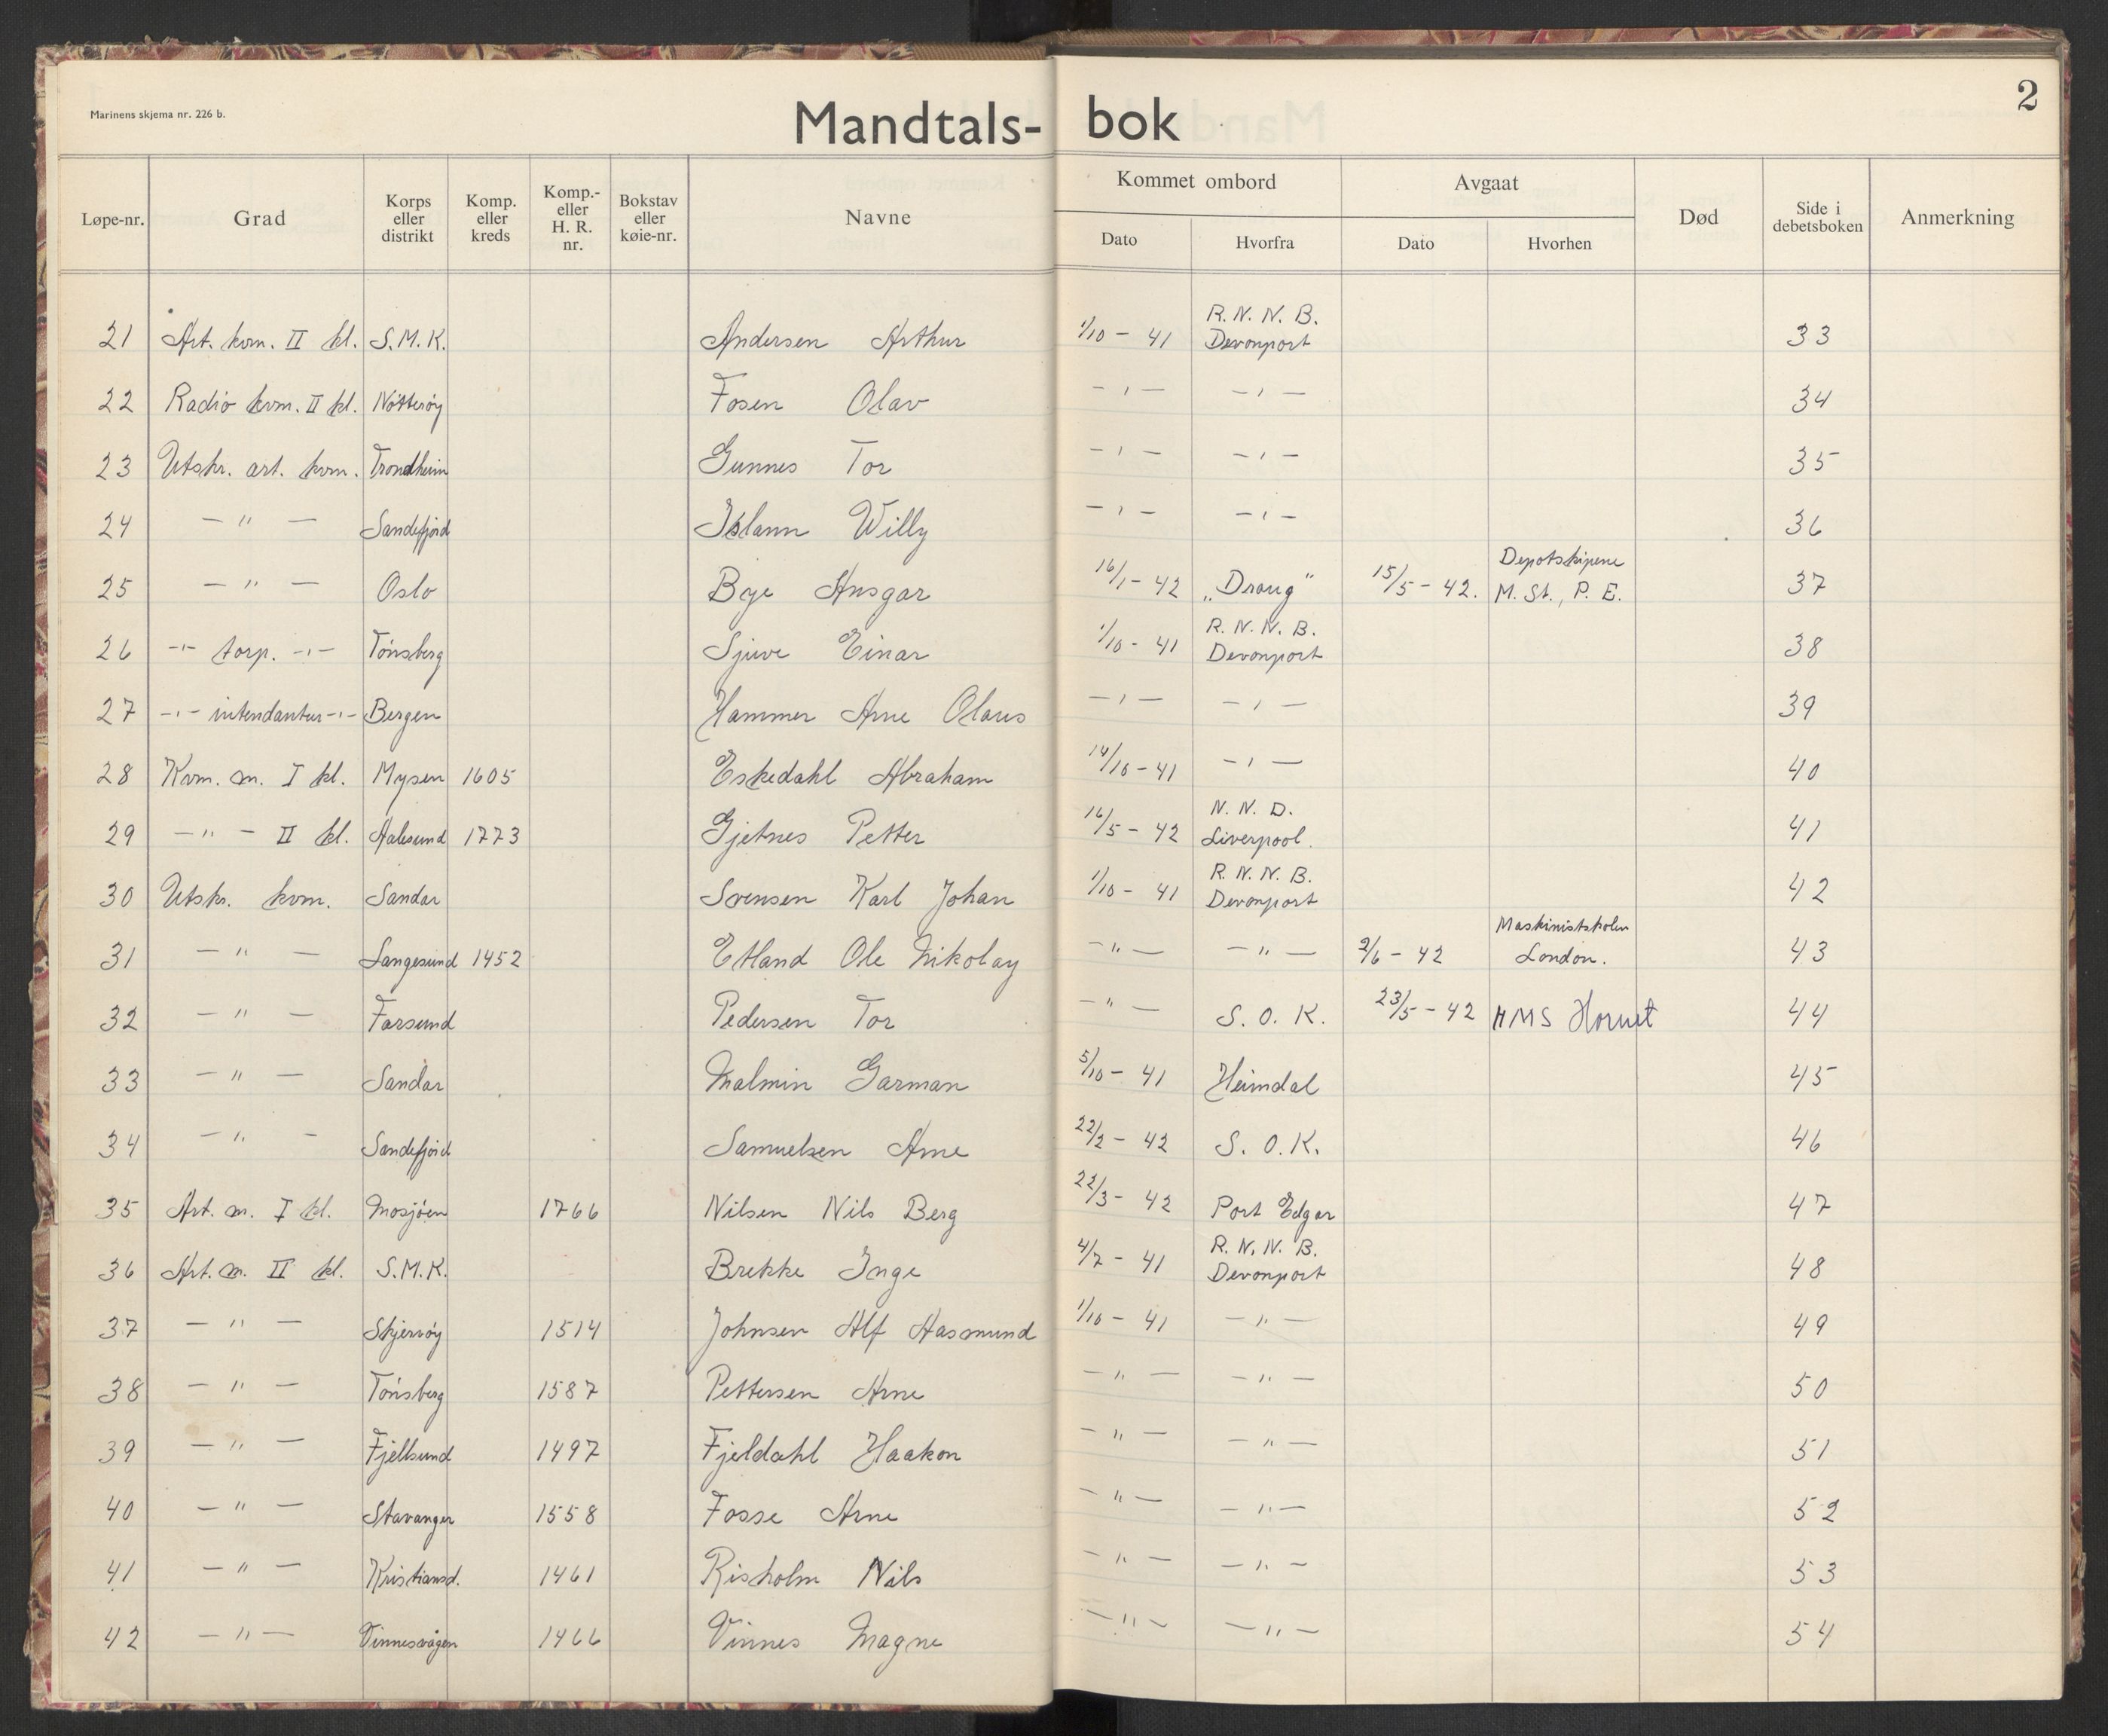 Marinens skjema nr. 226 b.
Mandtals-bok
2
Løpe-nr. Grad Korps eller distrikt Komp. eller kreds Komp.- eller H. R. nr. Bokstav eller køie-nr. Navne Kommet ombord Dato Hvorfra Avgaat Dato Hvorhen Død Side i debetsboken Anmerkning
21 Art. kvm. II kl. S.M.K. Andersen Arthur 1/10 - 41 R. N. N. B. Devonport 33
22 Radio kvm. II kl. Nøtterøy Fosen Olav - , - - , - 34
23 Utskr. art. kvm. Trondheim Gunnes Tor - , - - , - 35
24 - " - Sandefjord Islann Willy - , - - , - 36
25 - " - Oslo Bye Ansgar 16/1 - 42 „Draug" 15/5 - 42. Depotskipene M. St., P. E. 37
26 -"- torp. -"- Tønsberg Sjuve Einar 1/10 - 41 R. N. N. B. Devonport 38
27 -"- intendantur -"- Bergen Hammer Arne Olaus - , - - , - 39
28 Kvm. m. I kl. Mysen 1605 Eskedahl Abraham 14/10 - 41 - , - 40
29 - " - II kl. Aalesund 1773 Gjetnes Petter 16/5 - 42 N. N. D. Liverpool. 41
30 Utskr. kvm. Sandar Svensen Karl Johan 1/10 - 41 R. N. N. B. Devonport 42
31 - " - Langesund 1452 Etland Ole Nikolay - " - - " - 2/6 - 42 Maskinistskolen London. 43
32 - " - Farsund Pedersen Tor - " - S. O. K. 23/5 - 42 HMS Hornet 44
33 - " - Sandar Malmin Garman 5/10 - 41 Heimdal 45
34 - " - Sandefjord Samuelsen Arne 22/2 - 42 S. O. K. 46
35 Art. m. I kl. Mosjøen 1766 Nilsen Nils Berg 22/3 - 42 Port Edgar 47
36 Art. m. II kl. S.M.K. Brekke Inge 4/7 - 41 R. N. N. B. Devonport 48
37 - " - Skjervøy 1514 Johnsen Alf Aasmund 1/10 - 41 - " - 49
38 - " - Tønsberg 1587 Pettersen Arne - " - - " - 50
39 - " - Fjellsund 1497 Fjeldahl Haakon - " - - " - 51
40 - " - Stavanger 1558 Fosse Arne - " - - " - 52
41 - " - Kristiansd. 1461 Risholm Nils - " - - " - 53
42 - " - Vinnesvågen 1466 Vinnes Magne - " - - " - 54